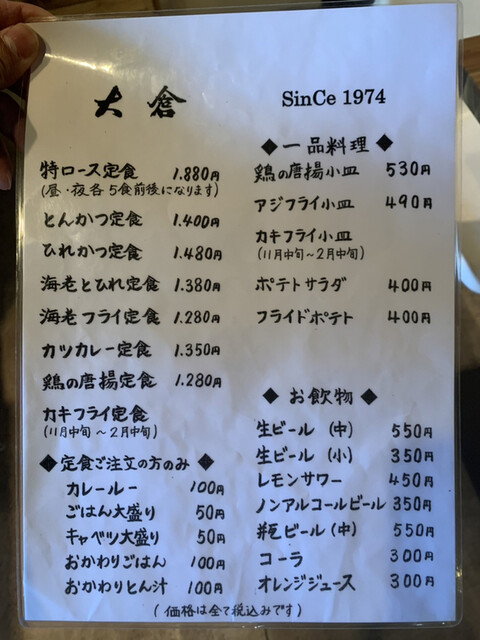 大倉
SinCe 1974
特ロース定食 1.880円
(昼・夜各5食前後になります)
とんかつ定食 1.400円
ひれかつ定食 1.480円
海老とひれ定食 1.380円
海老フライ定食 1.280円
カツカレー定食 1.350円
鶏の唐揚定食 1.280円
カキフライ定食
(11月中旬～2月中旬)
◆定食ご注文の方のみ◆
カレールー 100円
ごはん大盛り 50円
キャベツ大盛り 50円
おかわりごはん 100円
おかわりとん汁 100円
◆一品料理◆
鶏の唐揚小皿 530円
アジフライ小皿 490円
カキフライ小皿
(11月中旬～2月中旬)
ポテトサラダ 400円
フライドポテト 400円
◆お飲物◆
生ビール (中) 550円
生ビール (小) 350円
レモンサワー 450円
ノンアルコールビール 350円
瓶ビール (中) 550円
コーラ 300円
オレンジジュース 300円
(価格は全て税込みです)